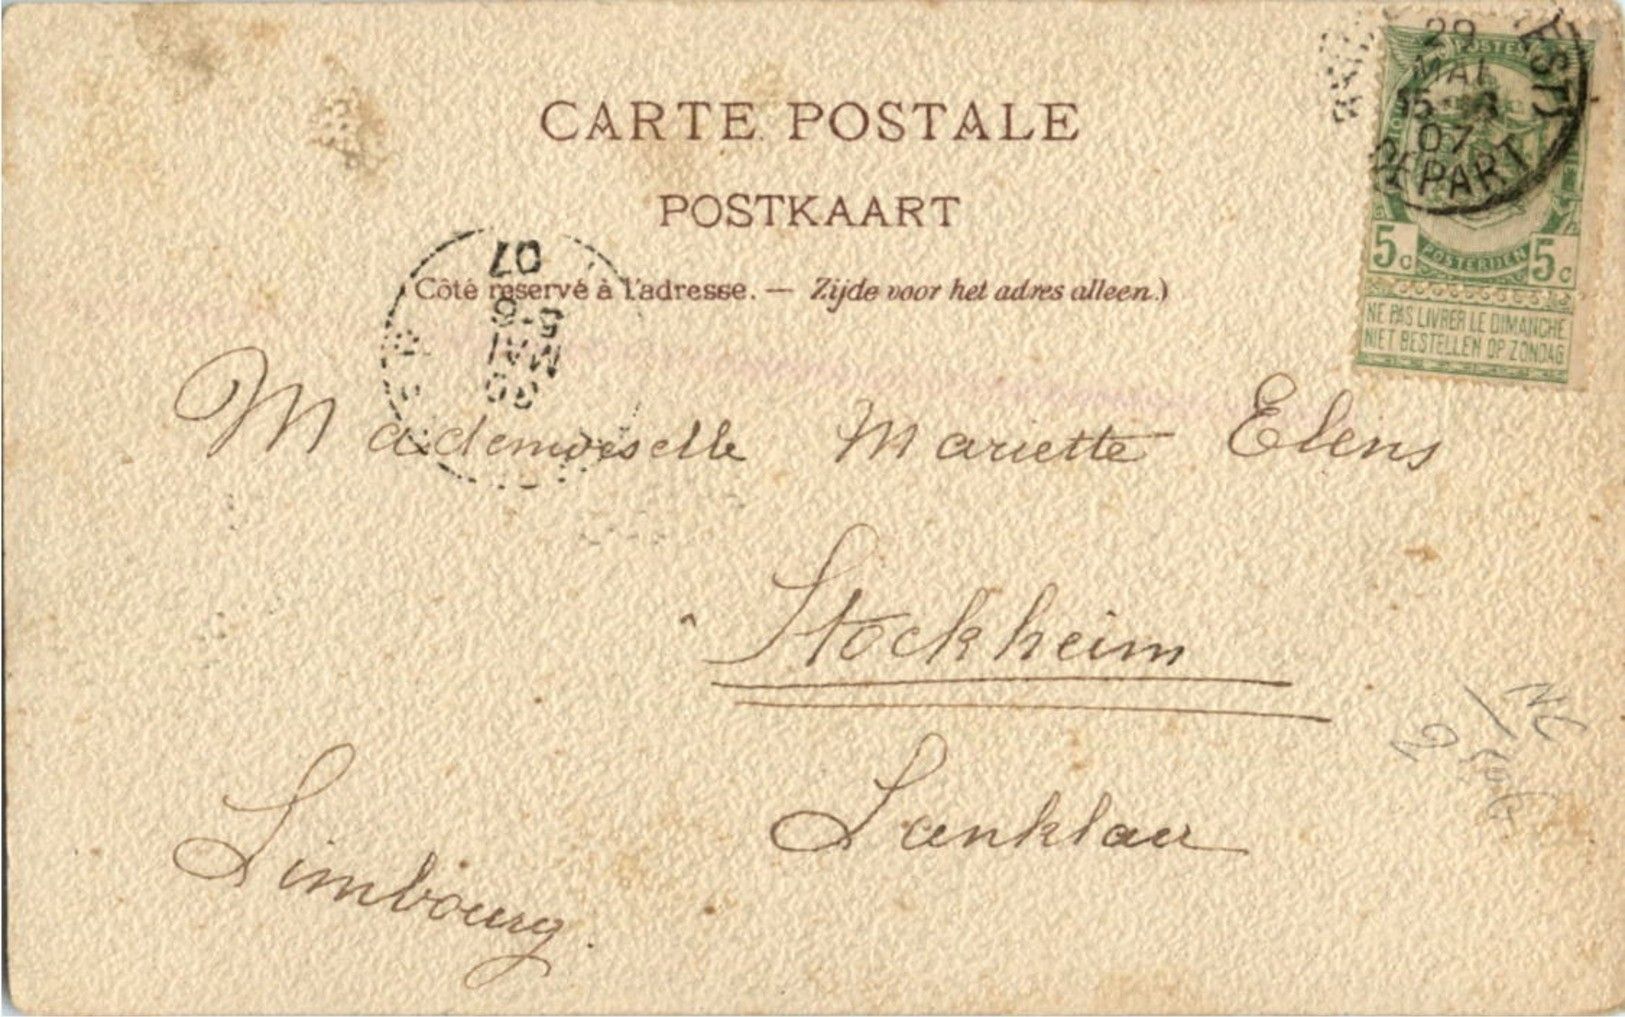 CARTE POSTALE
POSTKAART
(Côté réservé à l'adresse. — Zijde voor het adres alleen.)
29
MAI
07
DEPART
EST)
POSTES
5c POSTERIJEN 5c
NE PAS LIVRER LE DIMANCHE
NIET BESTELLEN OP ZONDAG
30
MAI
5-6
07
Mademoiselle Mariette Elens
Stockheim
Lanklaer
Limbourg.